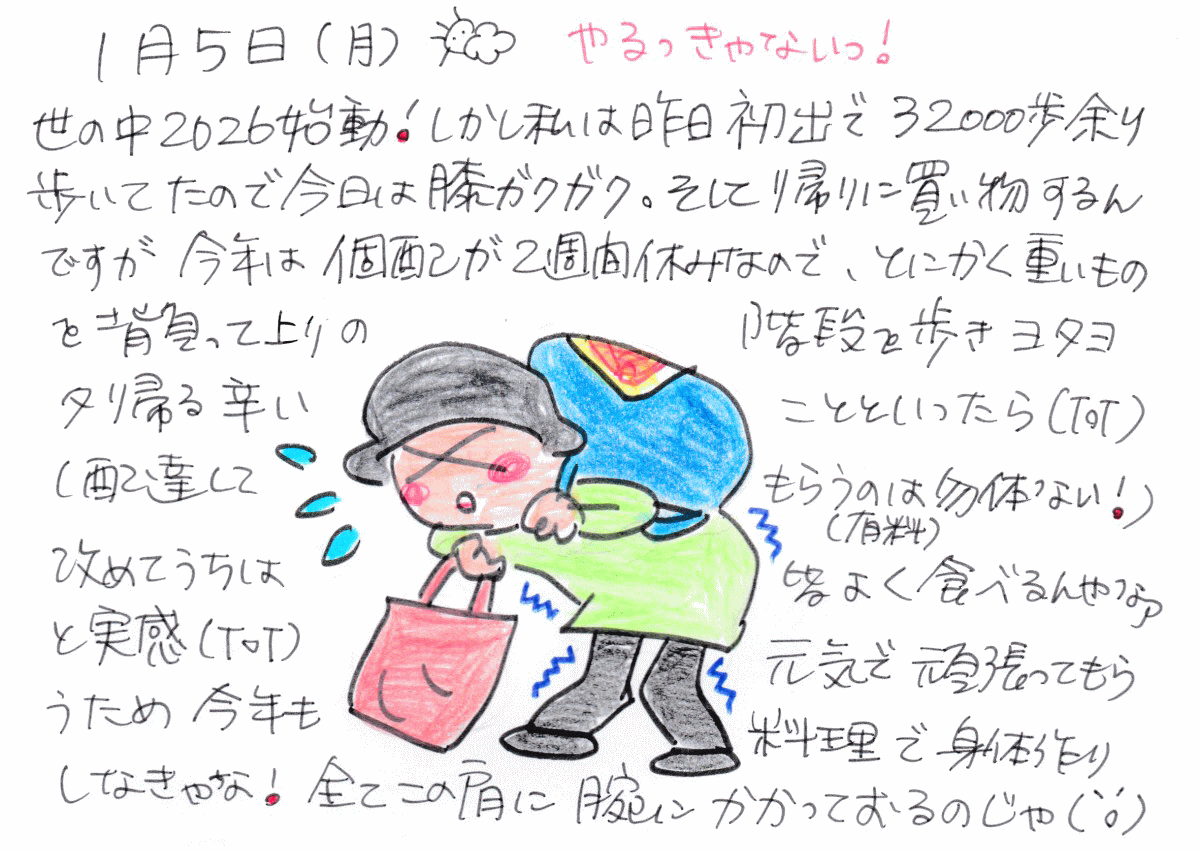 1月5日(月) やるっきゃないっ!
世の中2026始動!しかし私は昨日初出で32000歩余り
歩いてたので今日は膝ガクガク。そして帰りに買い物するん
ですが今年は個配が2週間休みなので、とにかく重いもの
を背負って上りの階段を歩きヨタヨ
タリ帰る辛いことといったら(ToT)
(配達してもらうのは勿体ない!)
(有料)
改めてうちは皆よく食べるんやなァ
と実感(ToT)元気で頑張ってもら
うため今年も料理で身体作り
しなきゃな!全てこの肩に腕にかかっておるのじゃ(°o°)